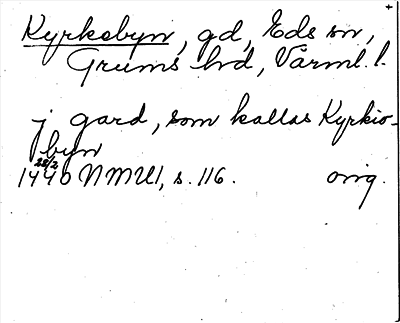 Kyrkobyn, gd, Eds sn,
Grums hd, Värml. l.
j gard, som kallas Kyrkio-
byn
28/2
1440 NMU1, s. 116. orig.